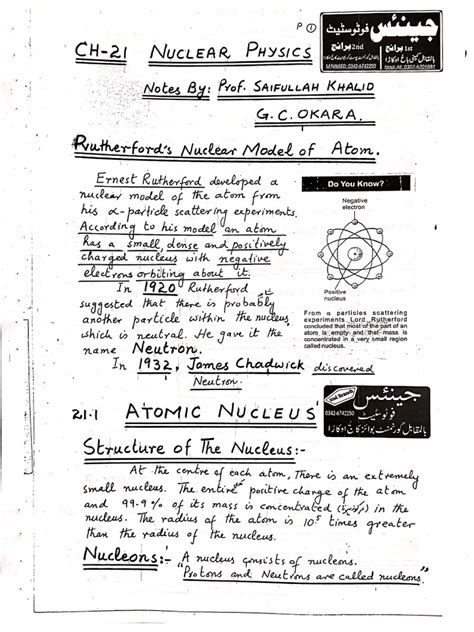 P ①
CH-21 NUCLEAR PHYSICS
جینئس فوٹوسٹیٹ
2nd برانچ 1st برانچ
Notes By: Prof. SAIFULLAH KHALID
G.C. OKARA.
Rutherford's Nuclear Model of Atom.
Ernest Rutherford developed a
nuclear model of the atom from
his α-particle scattering experiments.
According to his model an atom
has a small, dense and positively
charged nucleus with negative
electrons orbiting about it.
In 1920 Rutherford
suggested that there is probably
another particle within the nucleus
which is neutral. He gave it the
name Neutron.
In 1932, James Chadwick discovered
Neutron.
Do You Know?
Negative
electron
Positive
nucleus
From α particles scattering
experiments Lord Rutherford
concluded that most of the part of an
atom is empty and that mass is
concentrated in a very small region
called nucleus.
جینئس
0342-6742250 فوٹوسٹیٹ
بالمقابل گورنمنٹ بوائز کالج اوکاڑا
21.1 ATOMIC NUCLEUS
Structure of The Nucleus:-
At the centre of each atom, There is an extremely
small nucleus. The entire positive charge of the atom
and 99.9% of its mass is concentrated in the
nucleus. The radius of the atom is 10⁵ times greater
than the radius of the nucleus.
Nucleons:- A nucleus consists of nucleons.
"Protons and Neutrons are called nucleons."